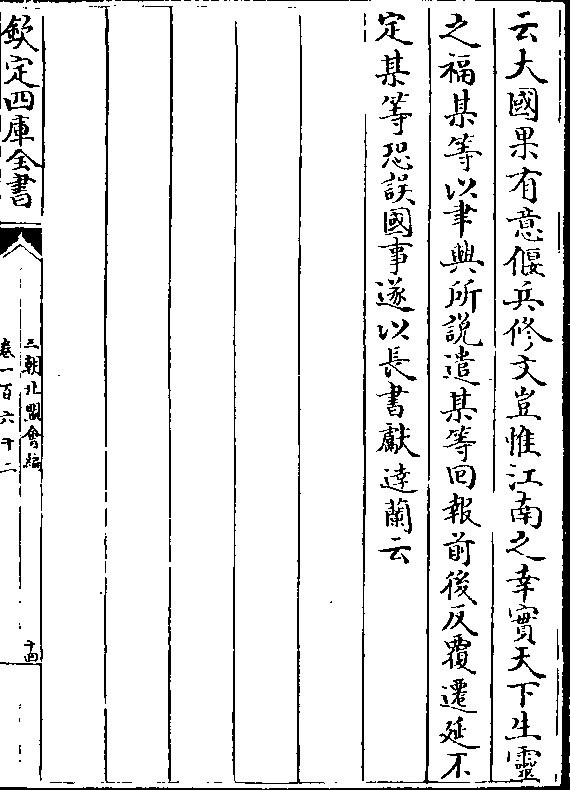 云大國果有意偃兵修文豈惟江南之幸實天下生靈
之福某等以聿興所說遣某等回報前後反覆遷延不
定某等恐誤國事遂以長書獻達蘭云
欽定四庫全書
三朝北盟會編
卷一百六十二
十四